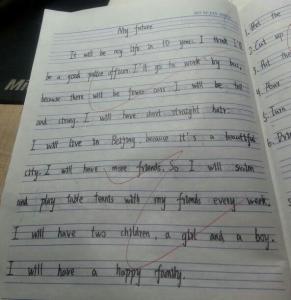 My future
It will be my life in 10 years. I think I'll
be a good police officer. I'll go to work by bus,
because there will be fewer cars. I will be tall
and strong. I will have short straight hair.
I will live in Beijing because it's a beautiful
city. I will have more friends. So I will swim
and play table tennis with my friends every week.
I will have two children, a girl and a boy.
I will have a happy family.
1. Put the
2. Cut up
3. Put the
4. Pour
5. Turn